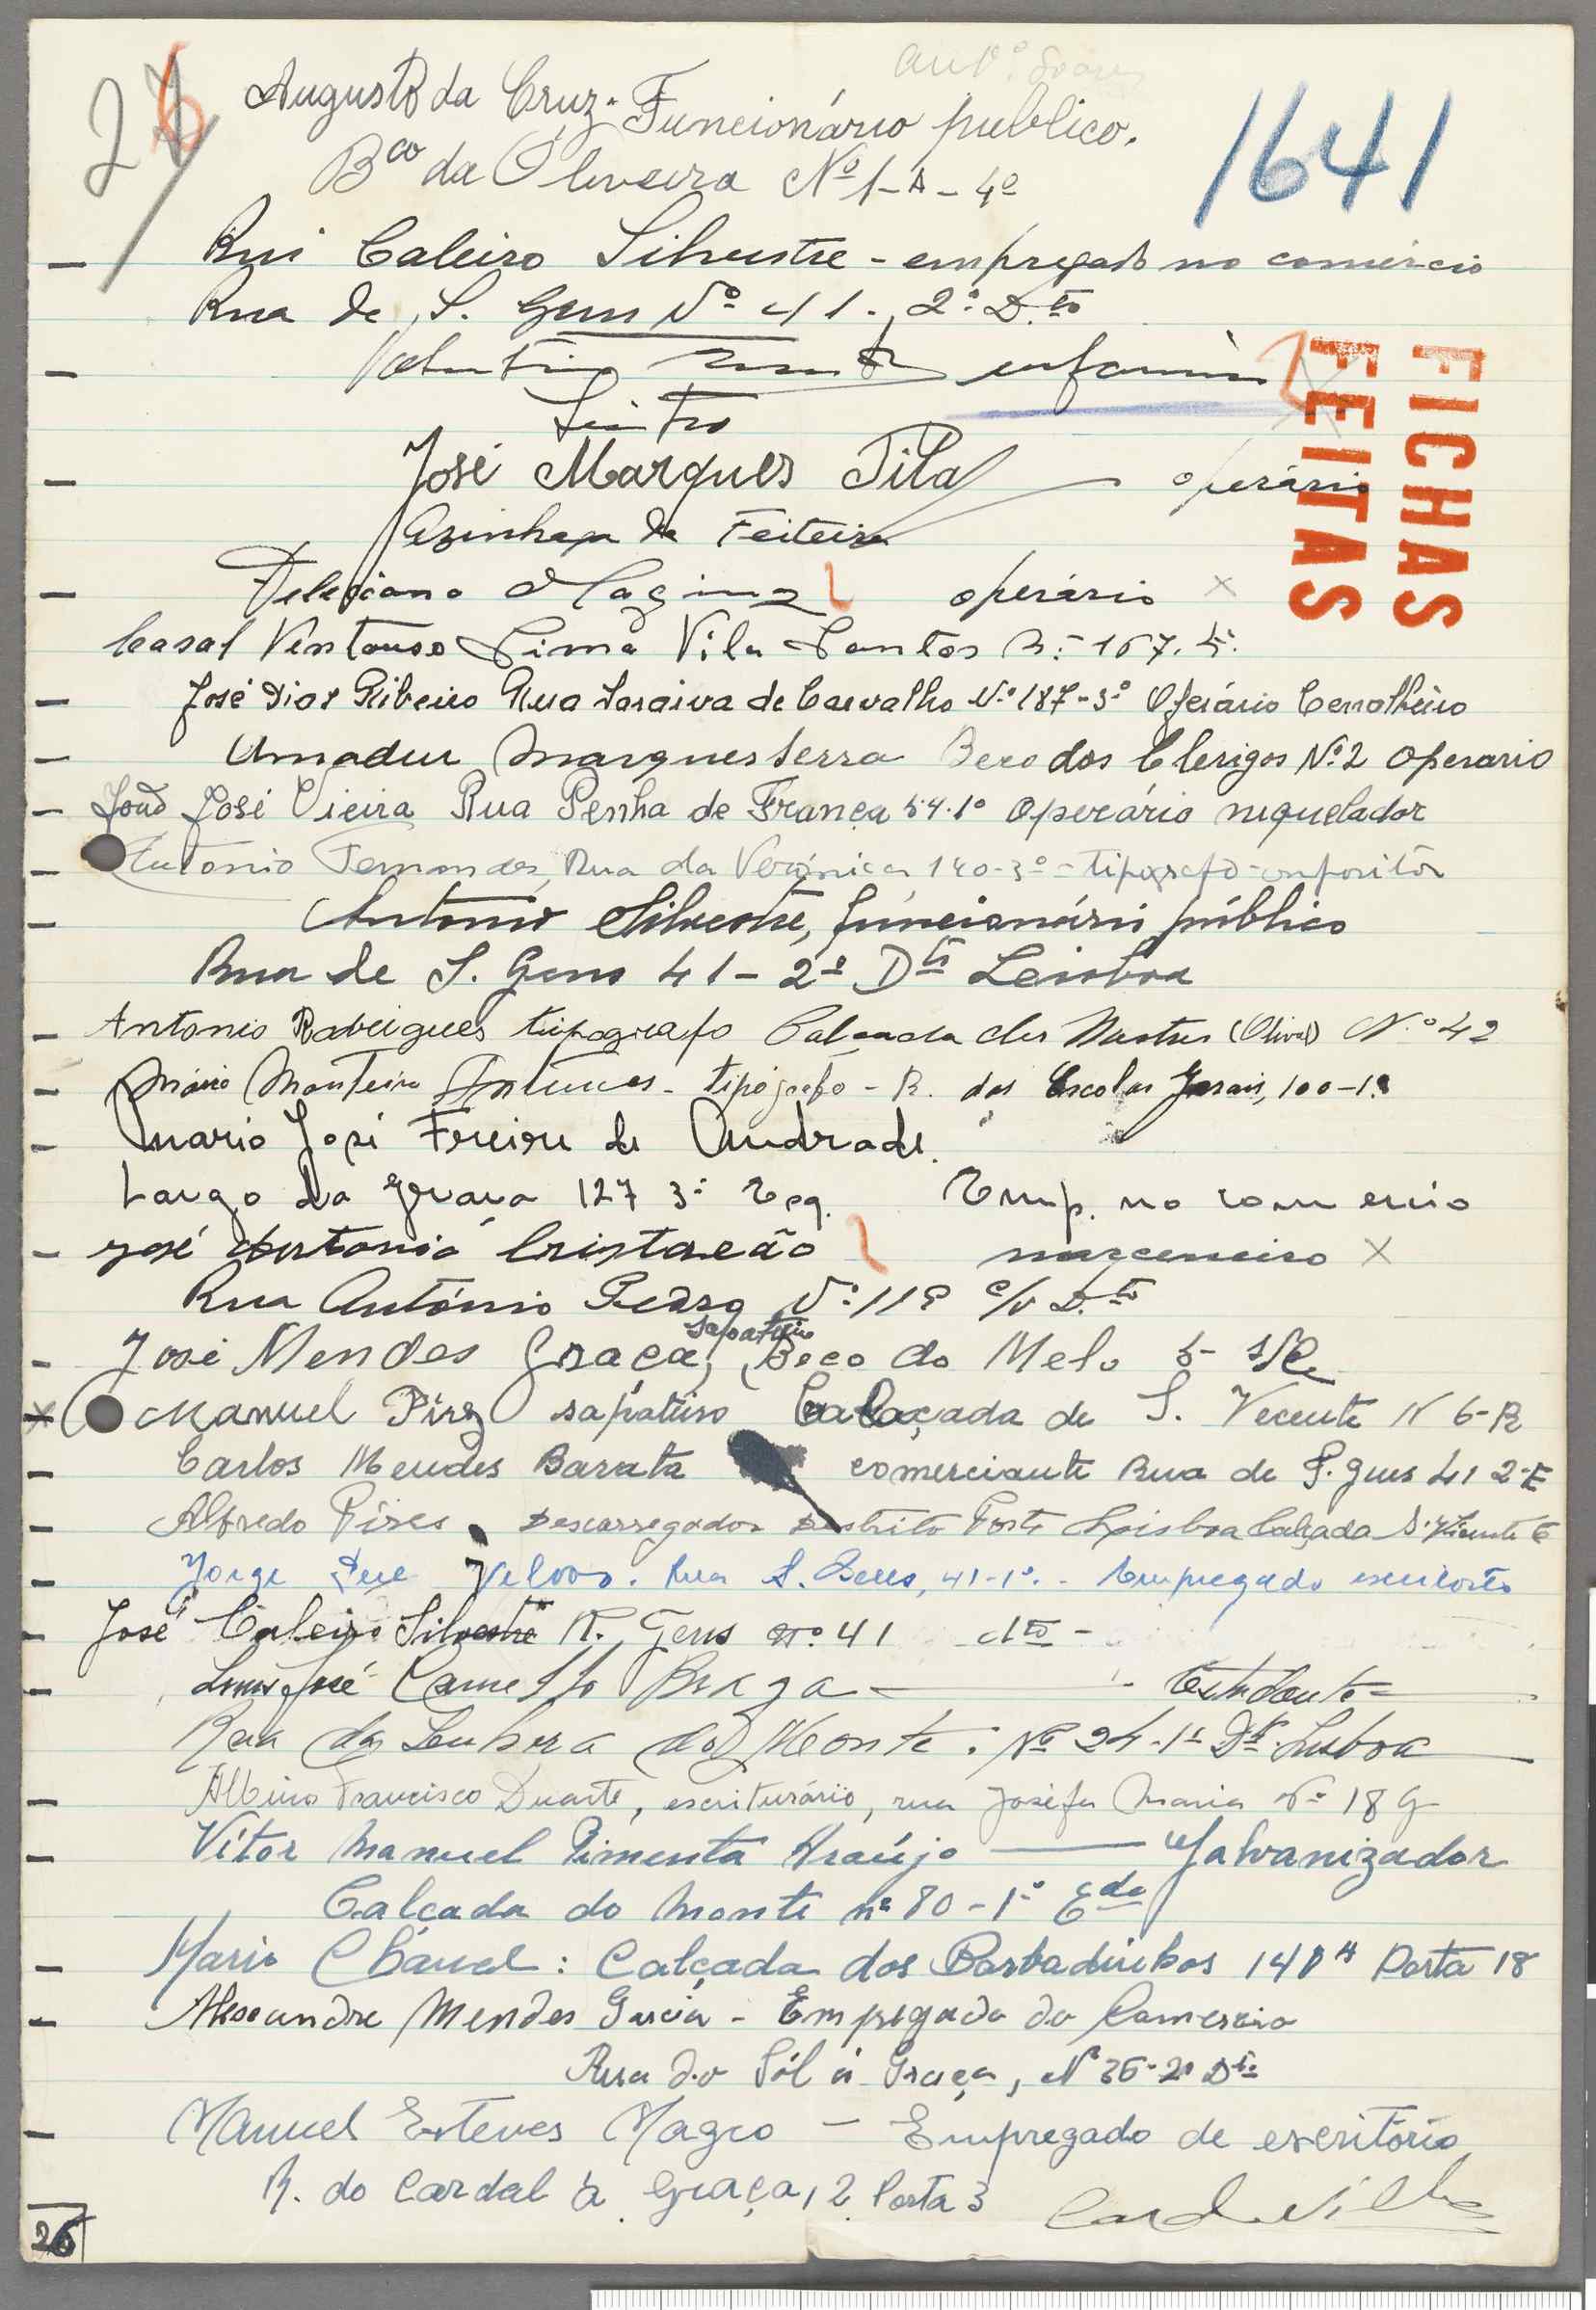 26
Augusto da Cruz - Funcionário publico.
1641
Bco da Oliveira Nº 1-A-4º
Rui Caleiro Silvestre - empregado no comércio
Rua de S. Gens Nº 41-2º D.to
FICHAS
FEITAS
José Marques Pila operário
Azinhaga da Feiteira
operário
Casal Ventoso Sima Vila Santos
José Dias Ribeiro Rua Saraiva de Carvalho Nº 187-3º Operário Cerralheiro
Amadeu Marques Serra Beco dos Clerigos Nº 2 Operario
João José Vieira Rua Penha de França 54-1º Operário niquelador
Antonio Fernandes, Rua da Verónica 140-3º - tipografo-
Antonio Silvestre, funcionário público
Rua de S. Gens 41-2º Dto Leisboa
Antonio Rodrigues tipografo Calçada dos (Olival) N.º 42
Mário Monteiro Antunes - tipógrafo - R. das Escolas Gerais, 100-1º
Mario José Freire de Andrade.
Largo da Graça 127 3º Esq. Emp. no comercio
José Antonio Cristovão marceneiro
Rua António Pedro Nº D.to
sapateiro
José Mendes Graça, Beco do Melo
Manuel Pirez sapateiro Calaçada de S. Vecente N 6-R
Carlos Mendes Barata comerciante Rua de S. Gens 41 2-E
Alfredo Pires Descarregador Lisboa Calçada S. Vicente 6
Jorge Rua S. Gens, 41-1º - Empregado
José Caleiro Silvestre R. Gens nº 41 dto -
José Camello Braga - Estudante -
Rua da Senhora do Monte. Nº 24-1º Dto Lisboa
Albino Francisco Duarte, escriturário, rua Josefa Maria Nº 18 G
Vítor Manuel Pimenta Araújo — Galvanizador
Calçada do Monte nº 80-1º Edo
Mario : Calçada dos Barbadinhos Porta 18
Alexandre Mendes Garcia - Empregado do Comercio
Rua do Sól á Graça, Nº 36-2º Dto
Manuel Esteves Magro - Empregado de escritório
R. do Cardal à Graça, 2 Porta 3
26